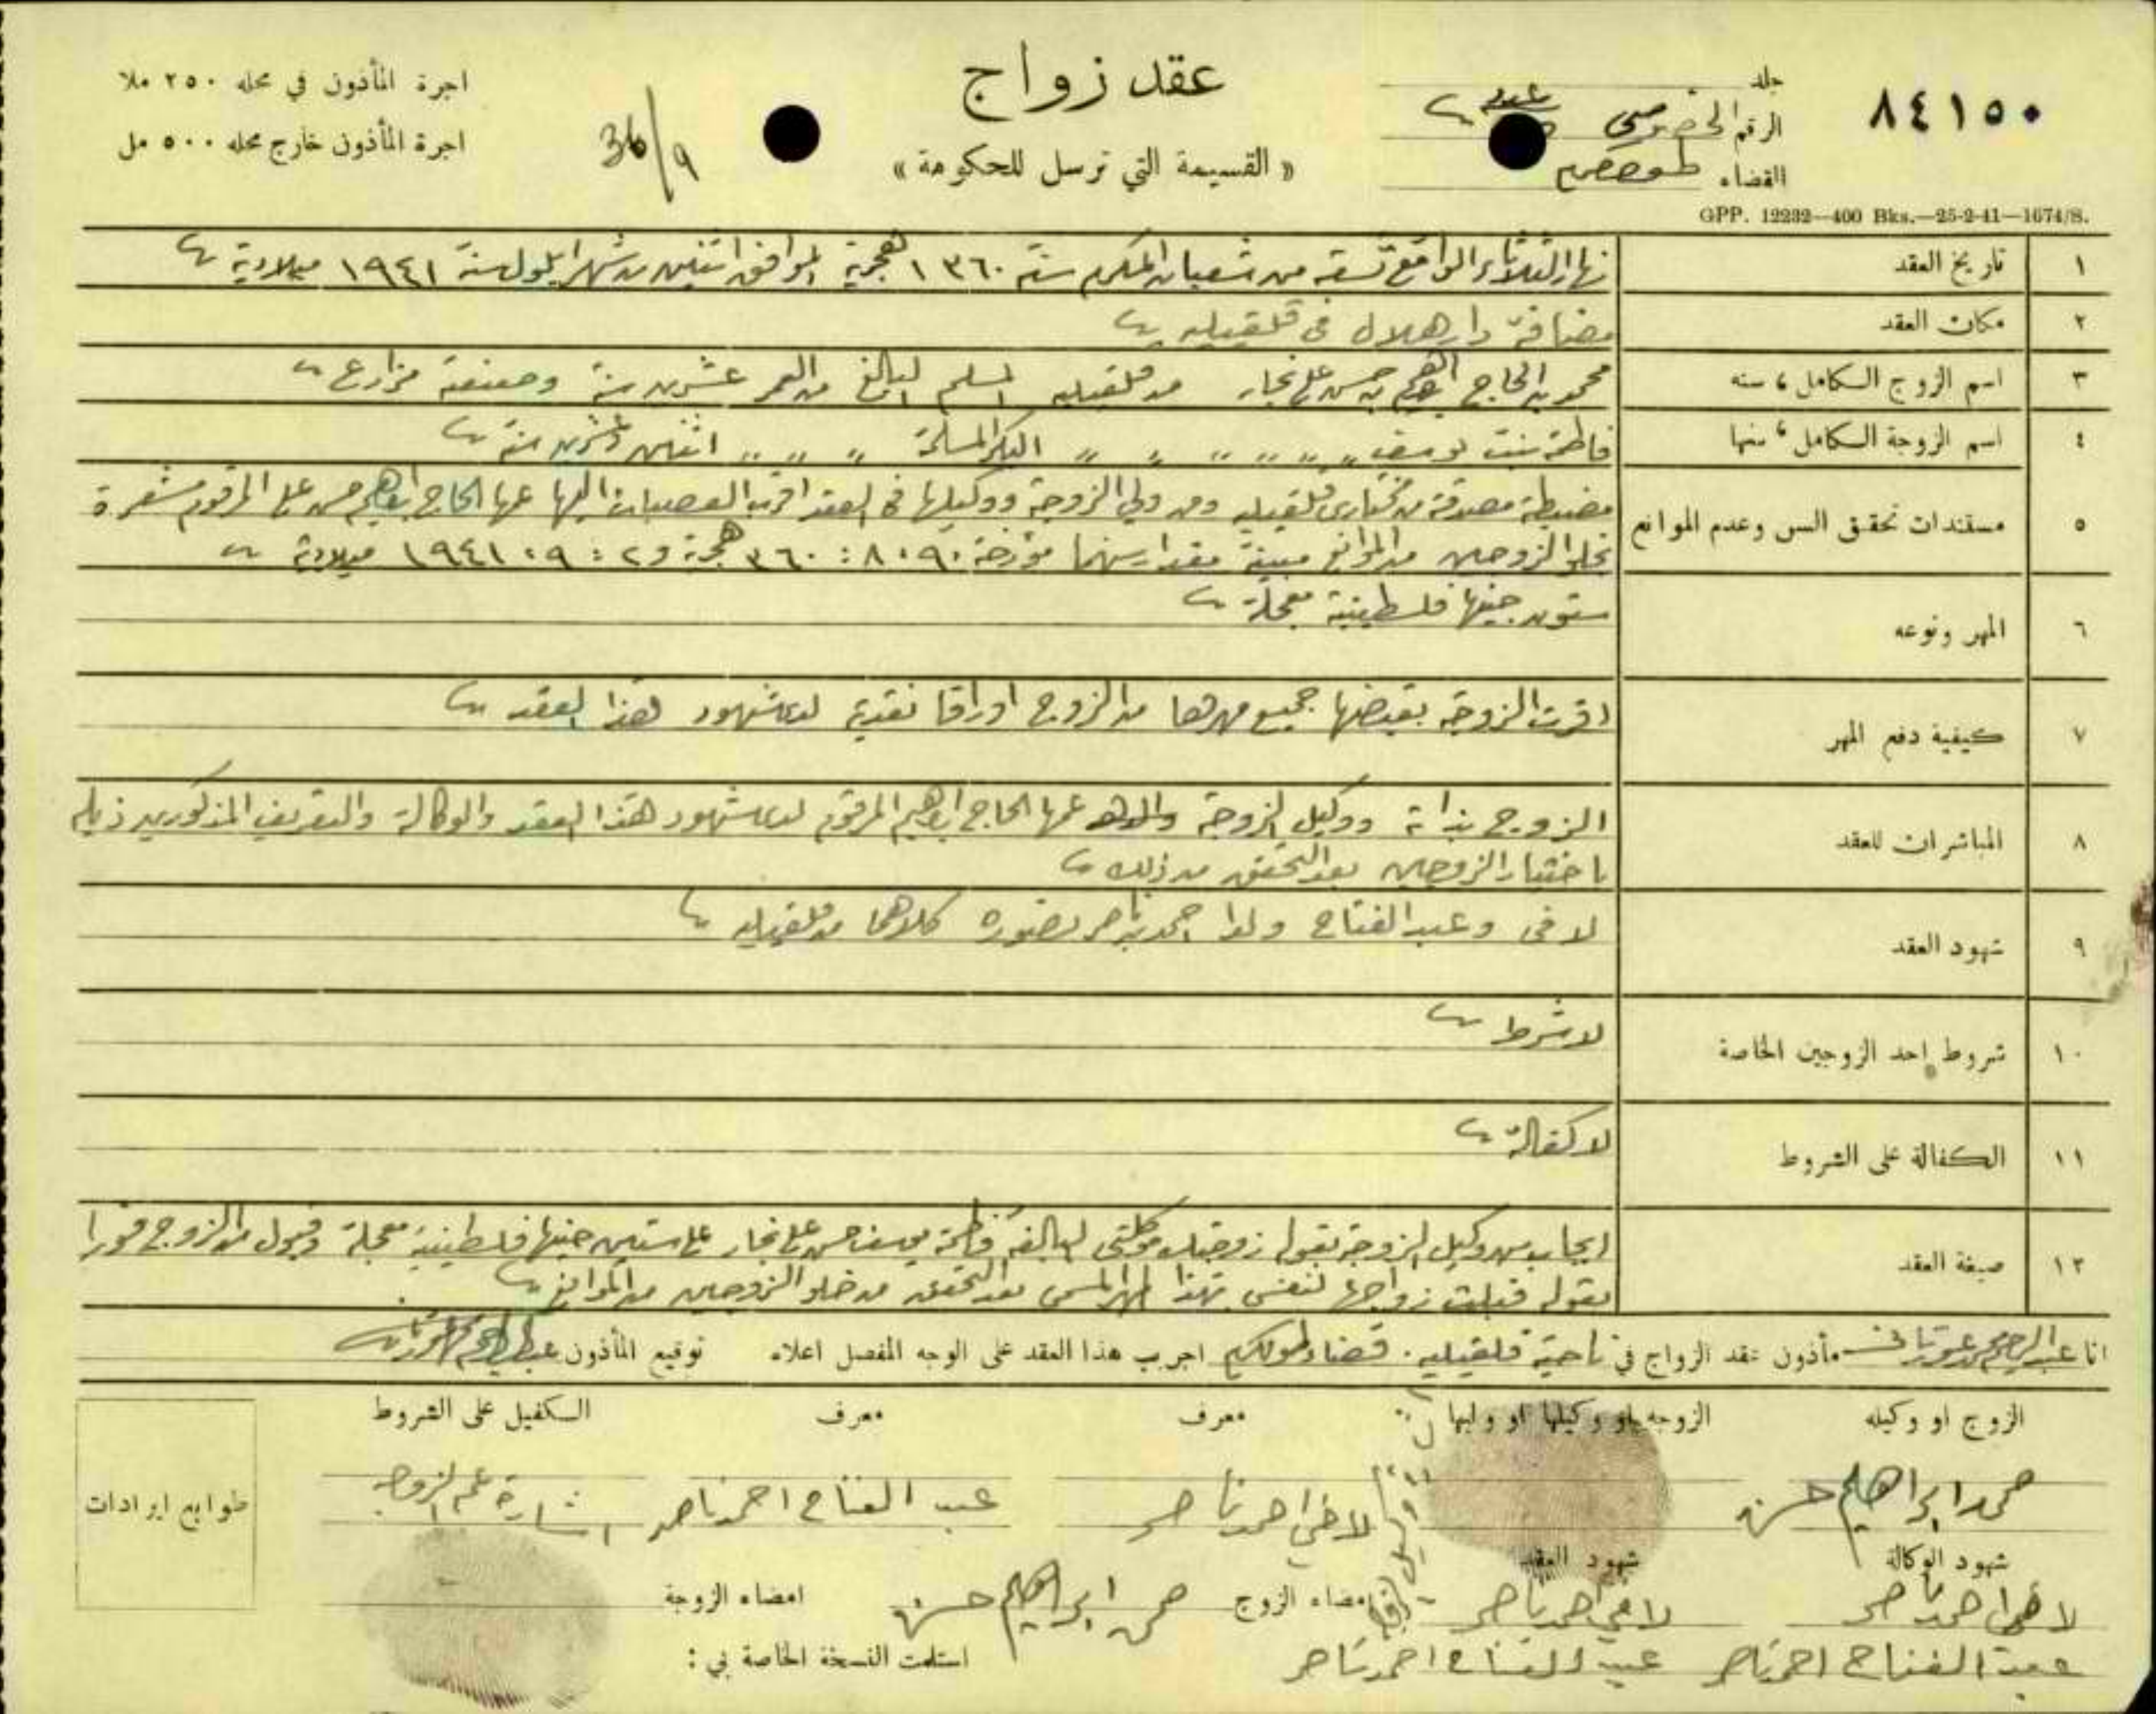 ٨٤١٥٠
جلد
الرقم الخصوصي
القضاء طولكرم
عقد زواج
« القسيمة التي ترسل للحكومة »
36/9
اجرة المأذون في محله ٢٥٠ ملا
اجرة المأذون خارج محله ٥٠٠ مل
GPP. 12232—400 Bks.—25-2-41—1674/S.
١ تاريخ العقد نهار الثلاثاء الواقع تسعة من شعبان المكرم سنة ١٣٦٠ هجرية الموافق اثنين من شهر ايلول سنة ١٩٤١ ميلادية
٢ مكان العقد مضافة دار هلال في قلقيليه
٣ اسم الزوج الكامل، سنه محمد بن الحاج ابراهيم بن حسن علي نجار من قلقيليه المسلم البالغ من العمر عشرين سنة وصنعته مزارع
٤ اسم الزوجة الكامل، سنها فاطمة بنت يوسف " " " " " " البكر المسلمة " " " اثنين وعشرين سنة
٥ مستندات تحقق السن وعدم الموانع مضبطة مصدقة من مختاري قلقيليه ومن ولي الزوجة ووكيلها في العقد اقرب العصبات اليها عمها الحاج ابراهيم حسن علي المرقوم مشعرة
بخلو الزوجين من الموانع مبينة مقدار سنهما مؤرخة ٩ : ٨ : ٣٦٠ هجرية و ٢ : ٩ : ١٩٤١ ميلادية
٦ المهر ونوعه ستون جنيها فلسطينية معجلة
٧ كيفية دفع المهر اقرت الزوجة بقبضها جميع مهرها من الزوج اوراقا نقدية لدى شهود هذا العقد
٨ المباشران للعقد الزوج بذاته ووكيل الزوجة عمها الحاج ابراهيم المرقوم لدى شهود هذا العقد والوكالة والتعريف المذكورين ذيله
باختيار الزوجين بعد التحقق من ذلك
٩ شهود العقد لافي وعبد الفتاح ولدا احمد ناصر كلاهما من قلقيليه
١٠ شروط احد الزوجين الخاصة لا شرط
١١ الكفالة على الشروط لا كفالة
١٢ صيغة العقد ايجاب من وكيل الزوجة بقوله زوجتك موكلتي البالغة فاطمة يوسف حسن علي نجار على ستين جنيها فلسطينية معجلة وقبول من الزوج فورا
بقوله قبلت زواجها لنفسي بهذا المهر المسمى بعد التحقق من خلو الزوجين من الموانع
انا عبد الرحيم مأذون عقد الزواج في ناحية قلقيليه . قضاء طولكرم اجريت هذا العقد على الوجه المفصل اعلاه توقيع المأذون
الزوج او وكيله الزوجة او وكيلها او وليها معرف معرف الكفيل على الشروط
محمد ابراهيم حسن لافي احمد ناصر عبد الفتاح احمد ناصر اشارة عم الزوجة
طوابع ايرادات
شهود الوكالة شهود العقد
لافي احمد ناصر لافي احمد ناصر امضاء الزوج محمد ابراهيم حسن امضاء الزوجة
عبد الفتاح احمد ناصر عبد الفتاح احمد ناصر استلمت النسخة الخاصة بي :